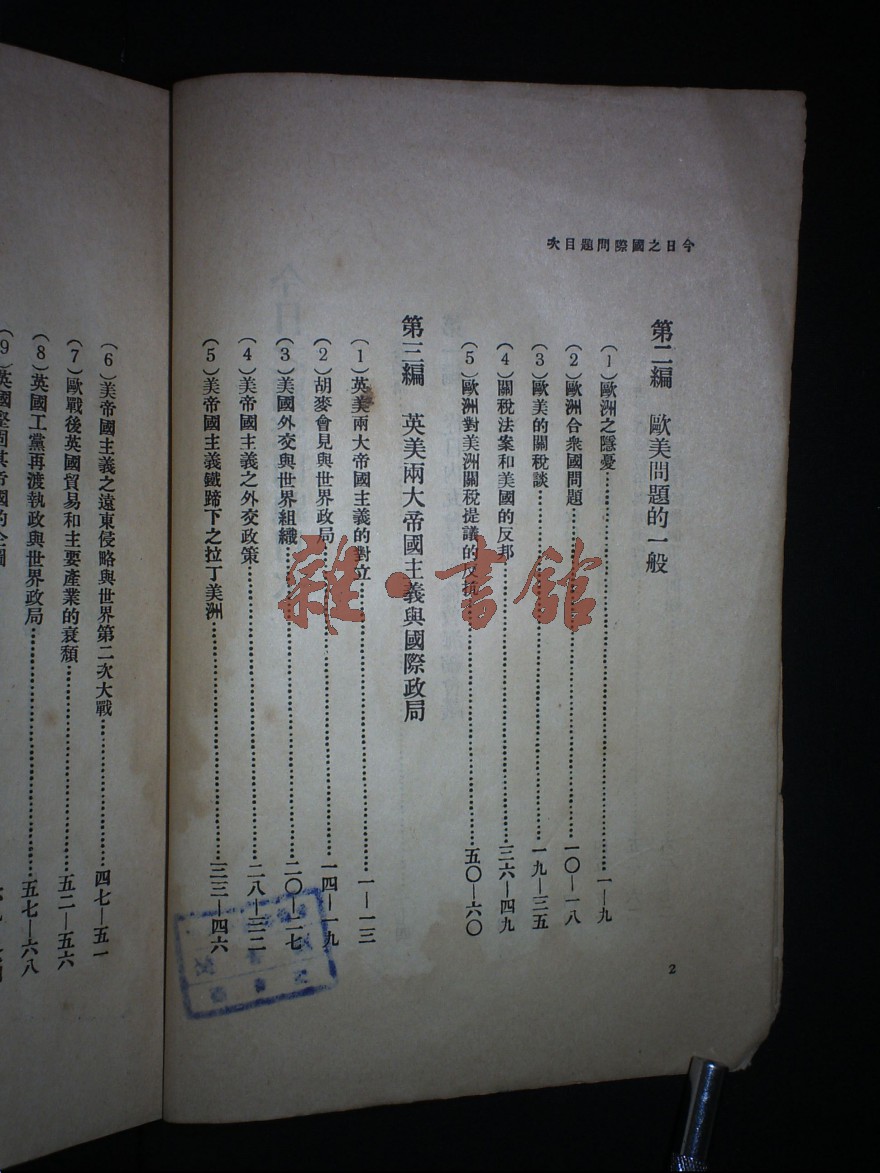 今日之國際問題目次
第二編 歐美問題的一般
(1)歐洲之隱憂…………一—九
(2)歐洲合衆國問題…………一〇—一八
(3)歐美的關稅談…………一九—三五
(4)關稅法案和美國的反邦…………三六—四九
(5)歐洲對美洲關稅提議的反抗…………五〇—六〇
第三編 英美兩大帝國主義與國際政局
(1)英美兩大帝國主義的對立…………一—一三
(2)胡麥會見與世界政局…………一四—一九
(3)美國外交與世界組織…………二〇—二七
(4)美帝國主義之外交政策…………二八—三二
(5)美帝國主義鐵蹄下之拉丁美洲…………三三—四六
2
(6)美帝國主義之遠東侵略與世界第二次大戰…………四七—五一
(7)歐戰後英國貿易和主要產業的衰頹…………五二—五六
(8)英國工黨再渡執政與世界政局…………五七—六八
(9)英國堅固其帝國的企圖
雜·書館